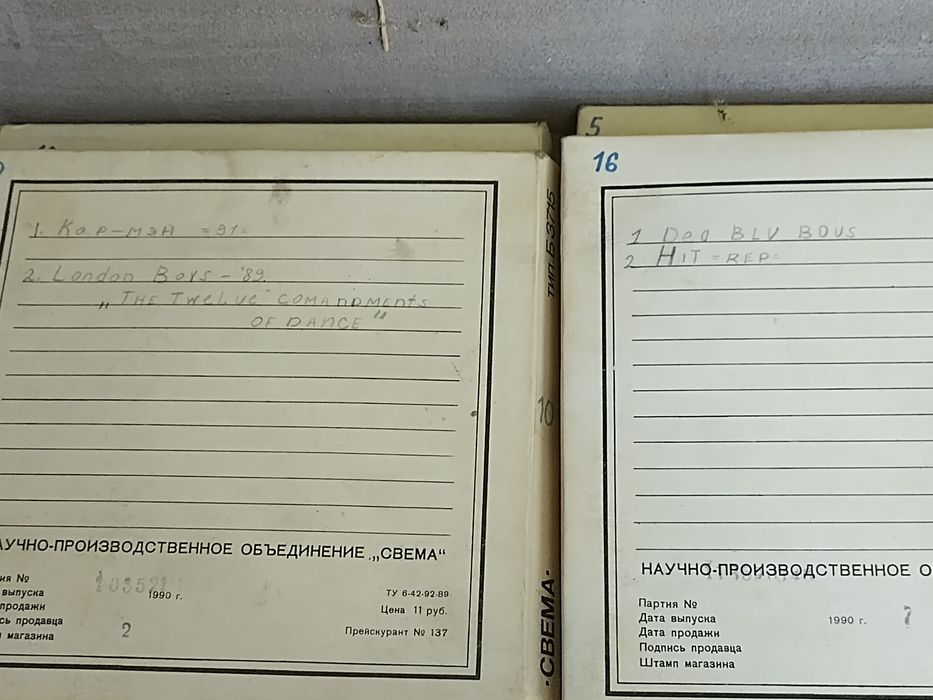 1. Кар-мэн =91=
2. London Boys - '89.
„THE TWELVE COMANDMENTS
OF DANCE"
АУЧНО-ПРОИЗВОДСТВЕННОЕ ОБЪЕДИНЕНИЕ „СВЕМА“
ия №
103521
выпуска
1990 г.
продажи
сь продавца
магазина
2
ТУ 6-42-92-89
Цена 11 руб.
Прейскурант № 137
ТИП Б3715
10
-СВЕМА-
5
16
1 Dad BLU BOUS
2 HIT =REP=
НАУЧНО-ПРОИЗВОДСТВЕННОЕ О
Партия №
Дата выпуска
1990 г.
7
Дата продажи
Подпись продавца
Штамп магазина